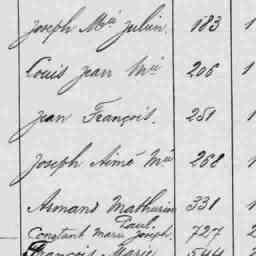 Joseph Mie Julien. 183 1
Louis Jean Mie 206 1
Jean François. 251 1
Joseph Aimé Mie 268 1
Armand Mathurin 331 1
Paul.
Constant Marie Joseph. 727 2
François Marie 544 2